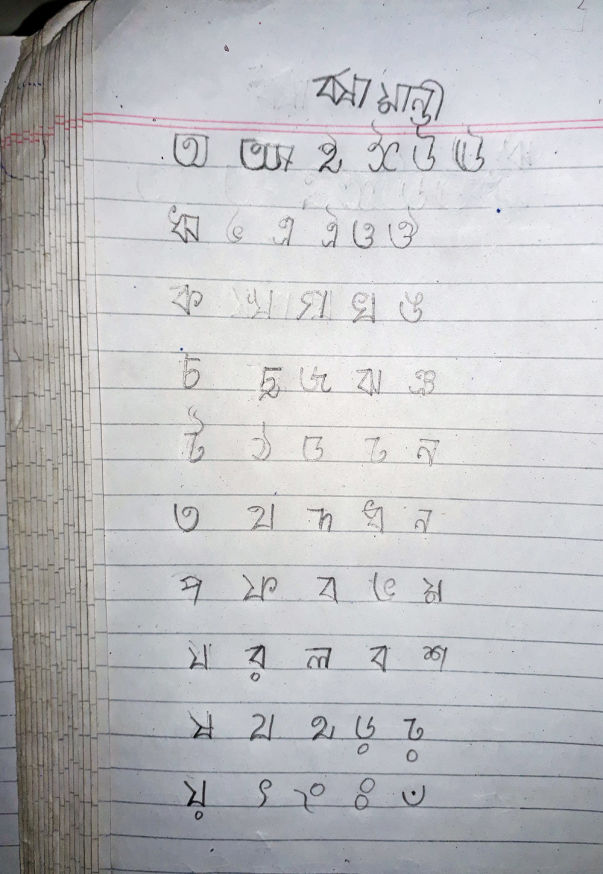 বর্ষা মান্ডী
অ আ ই ঈ উ ঊ
ঋ ঌ এ ঐ ও ঔ
ক খ গ ঘ ঙ
চ ছ জ ঝ ঞ
ট ঠ ড ঢ ন
ত থ দ ধ ন
প ফ ব ভ ম
য র ল ব শ
ষ স হ ড় ঢ়
য় ৎ ং ঃ ঁ